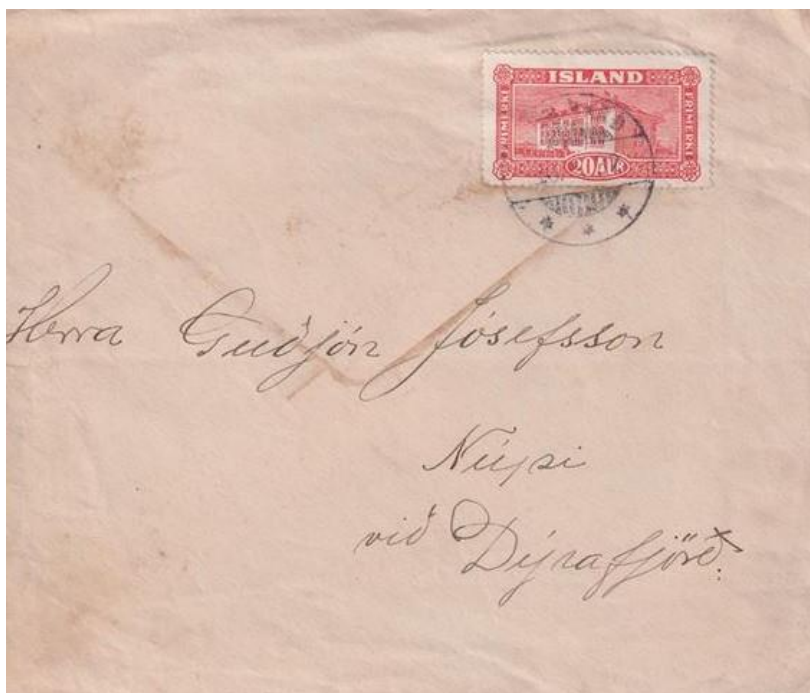 ISLAND
FRÍMERKI
FRÍMERKI
20 AUR
Herra Guðjón Jósefsson
Núpi
við Dýrafjörð.